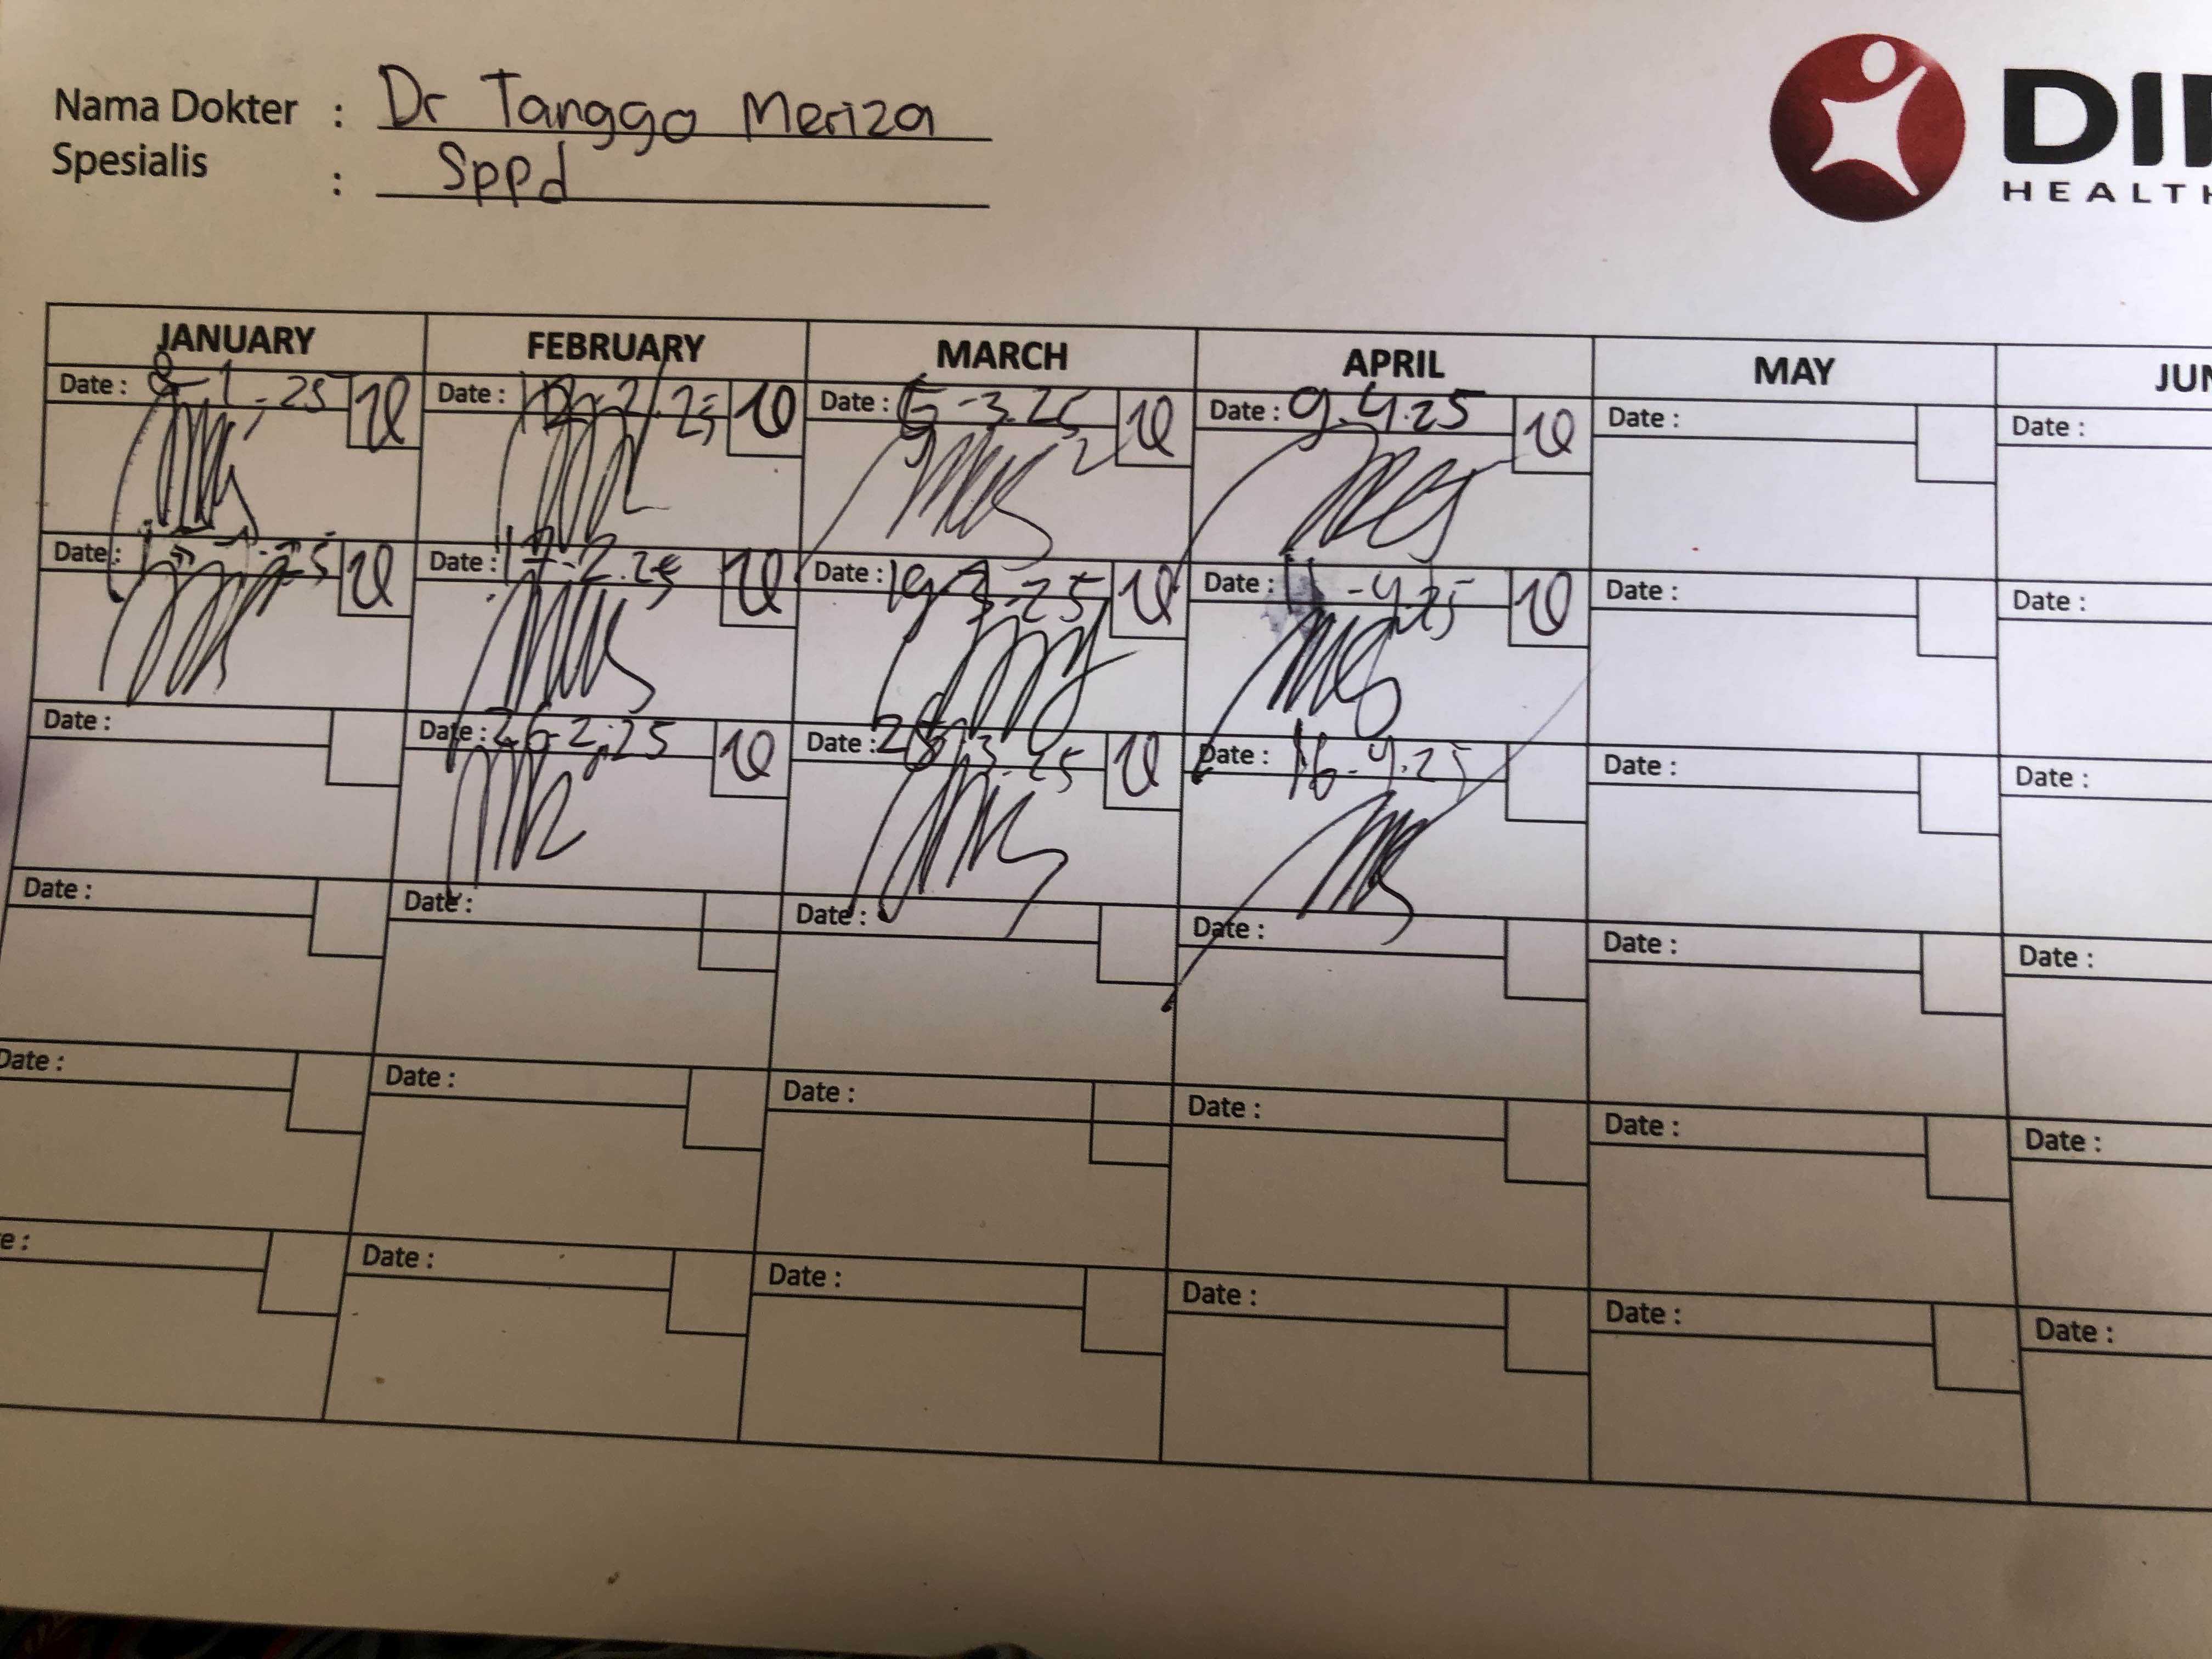 Nama Dokter : Dr Tanggo Meriza
Spesialis : Sppd
DI
HEALTH
JANUARY FEBRUARY MARCH APRIL MAY JUN
Date : 8-1-25 Date : 2.25 Date : 5-3.25 Date : 9.4.25 Date : Date :
Date : Date : 17-2.25 Date : 19-3-25 Date : 11-4.25 Date : Date :
Date : Date : 26-2.25 Date : 3.25 Date : 16-4.25 Date : Date :
Date : Date : Date : Date : Date : Date :
Date : Date : Date : Date : Date : Date :
e : Date : Date : Date : Date : Date :